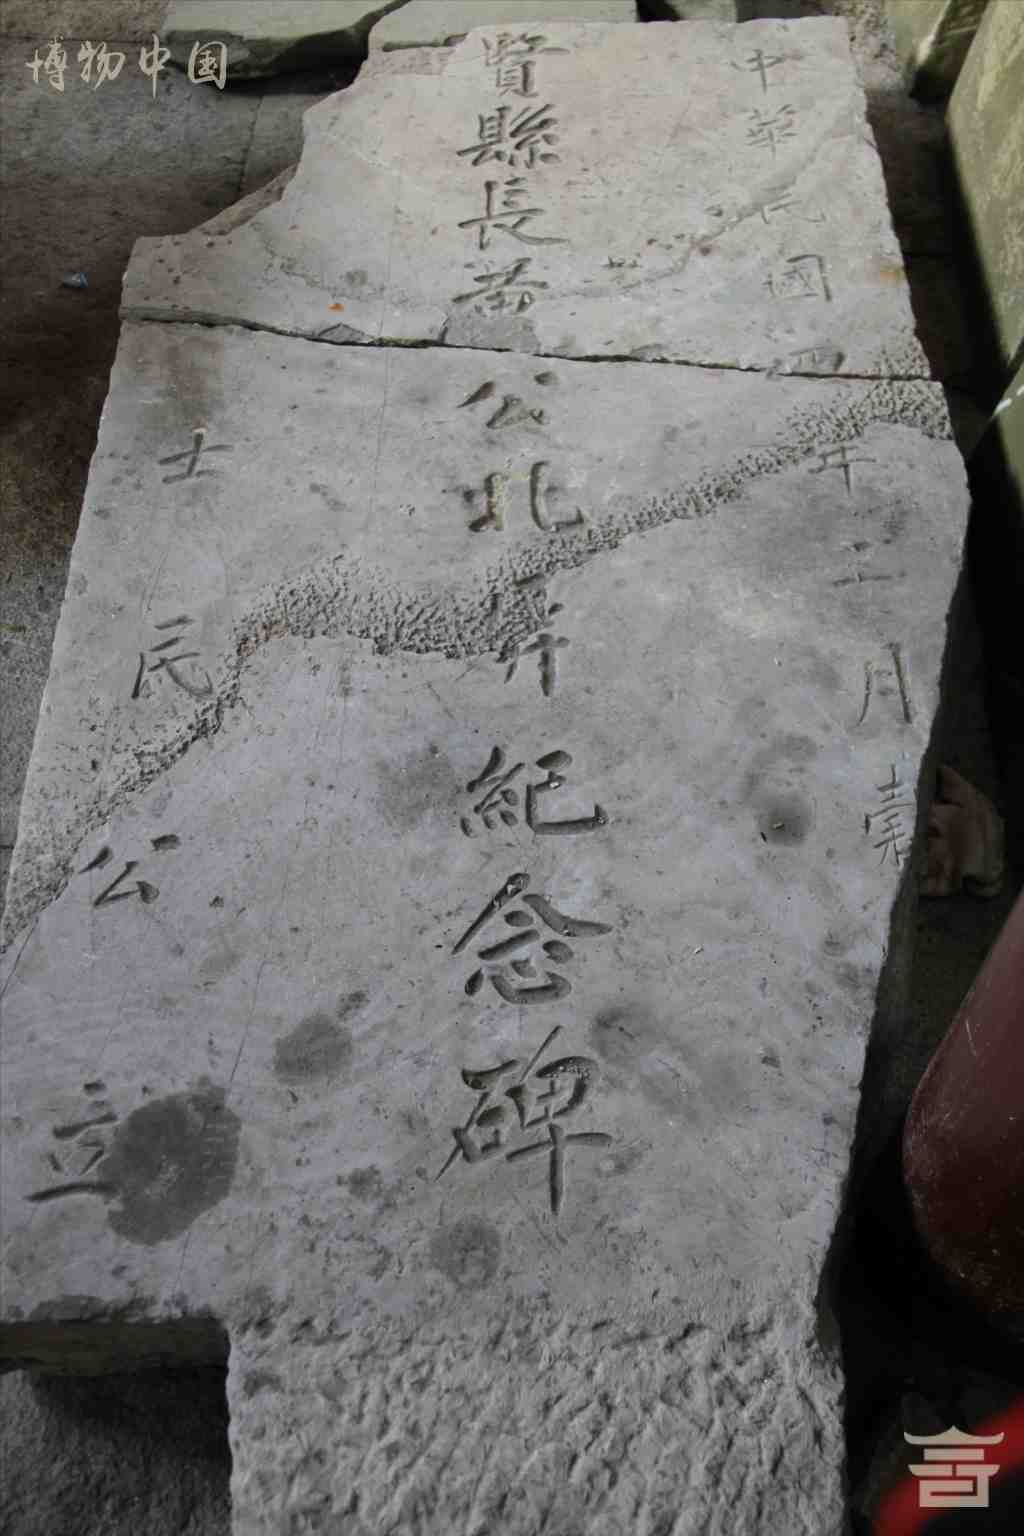 博物中国
中華民國四年二月
賢縣長黃公北屏紀念碑
士民公立